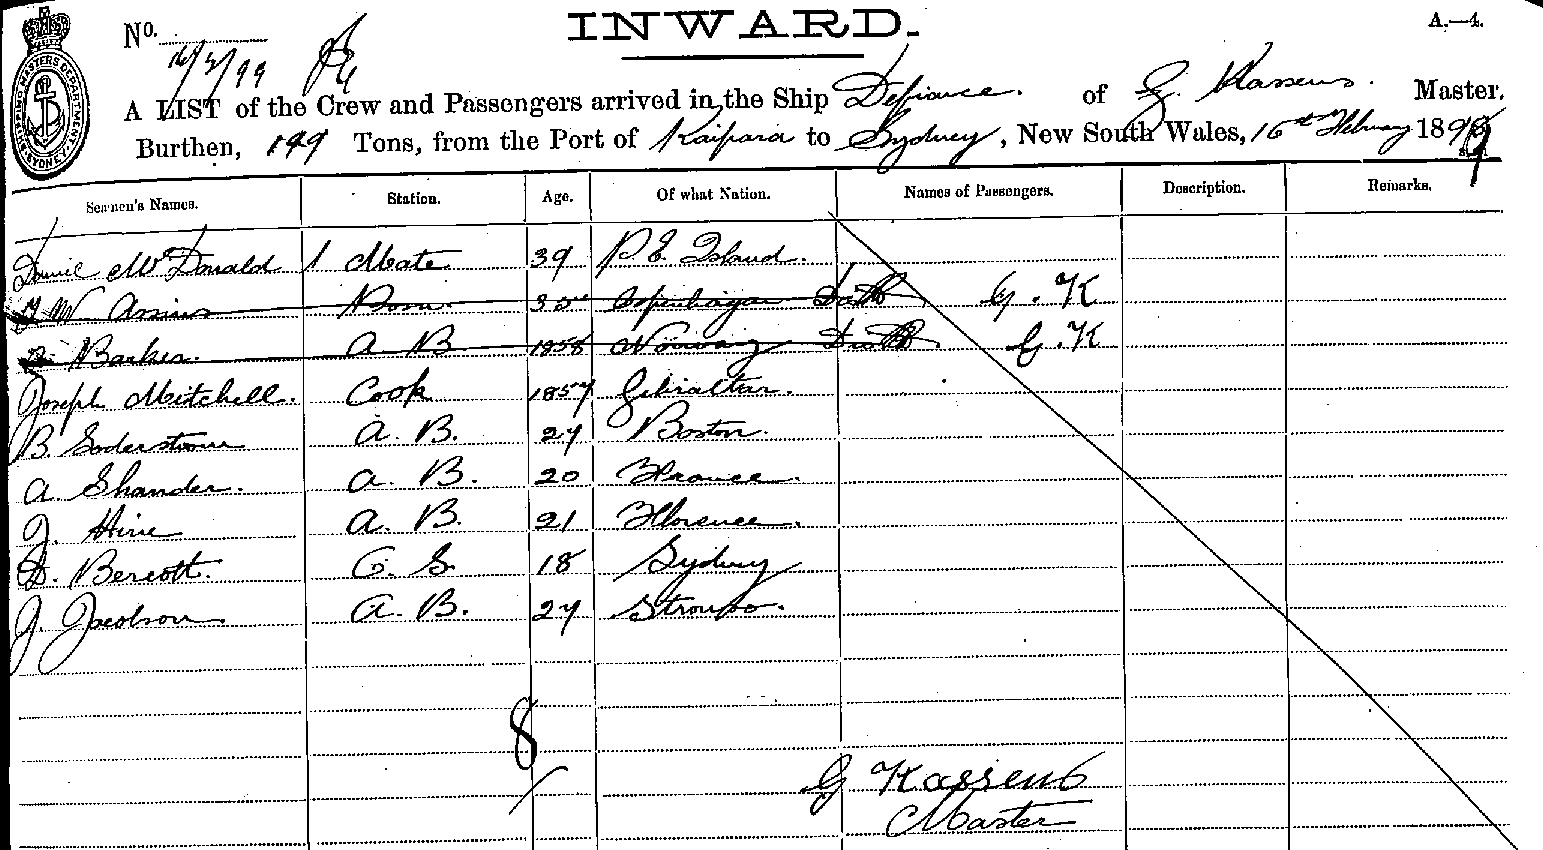 INWARD.
A.—4.
No.
16/2/99
SHIPPING MASTERS DEPARTMENT SYDNEY
A LIST of the Crew and Passengers arrived in the Ship Defiance. of G. Kassens. Master,
Burthen, 199 Tons, from the Port of Kaipara to Sydney, New South Wales, 16th February 1899
Seamen's Names. Station. Age. Of what Nation. Names of Passengers. Description. Remarks.
Daniel McDonald 1 Mate 39 P. E. Island.
W 35 Copenhagen G. K
Barker A B 1858 Norway G. K
Joseph Mitchell. Cook 1857 Gibraltar.
B A. B. 27 Boston.
A Shander. A. B. 20 France.
J. Hine A. B. 21 Florence.
D. Bercott. O. S. 18 Sydney
J. Jacobson A. B. 27
8
G Kassens
Master